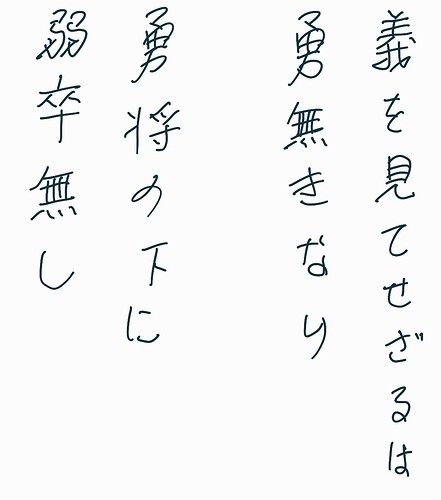 義を見てせざるは
勇無きなり
勇将の下に
弱卒無し